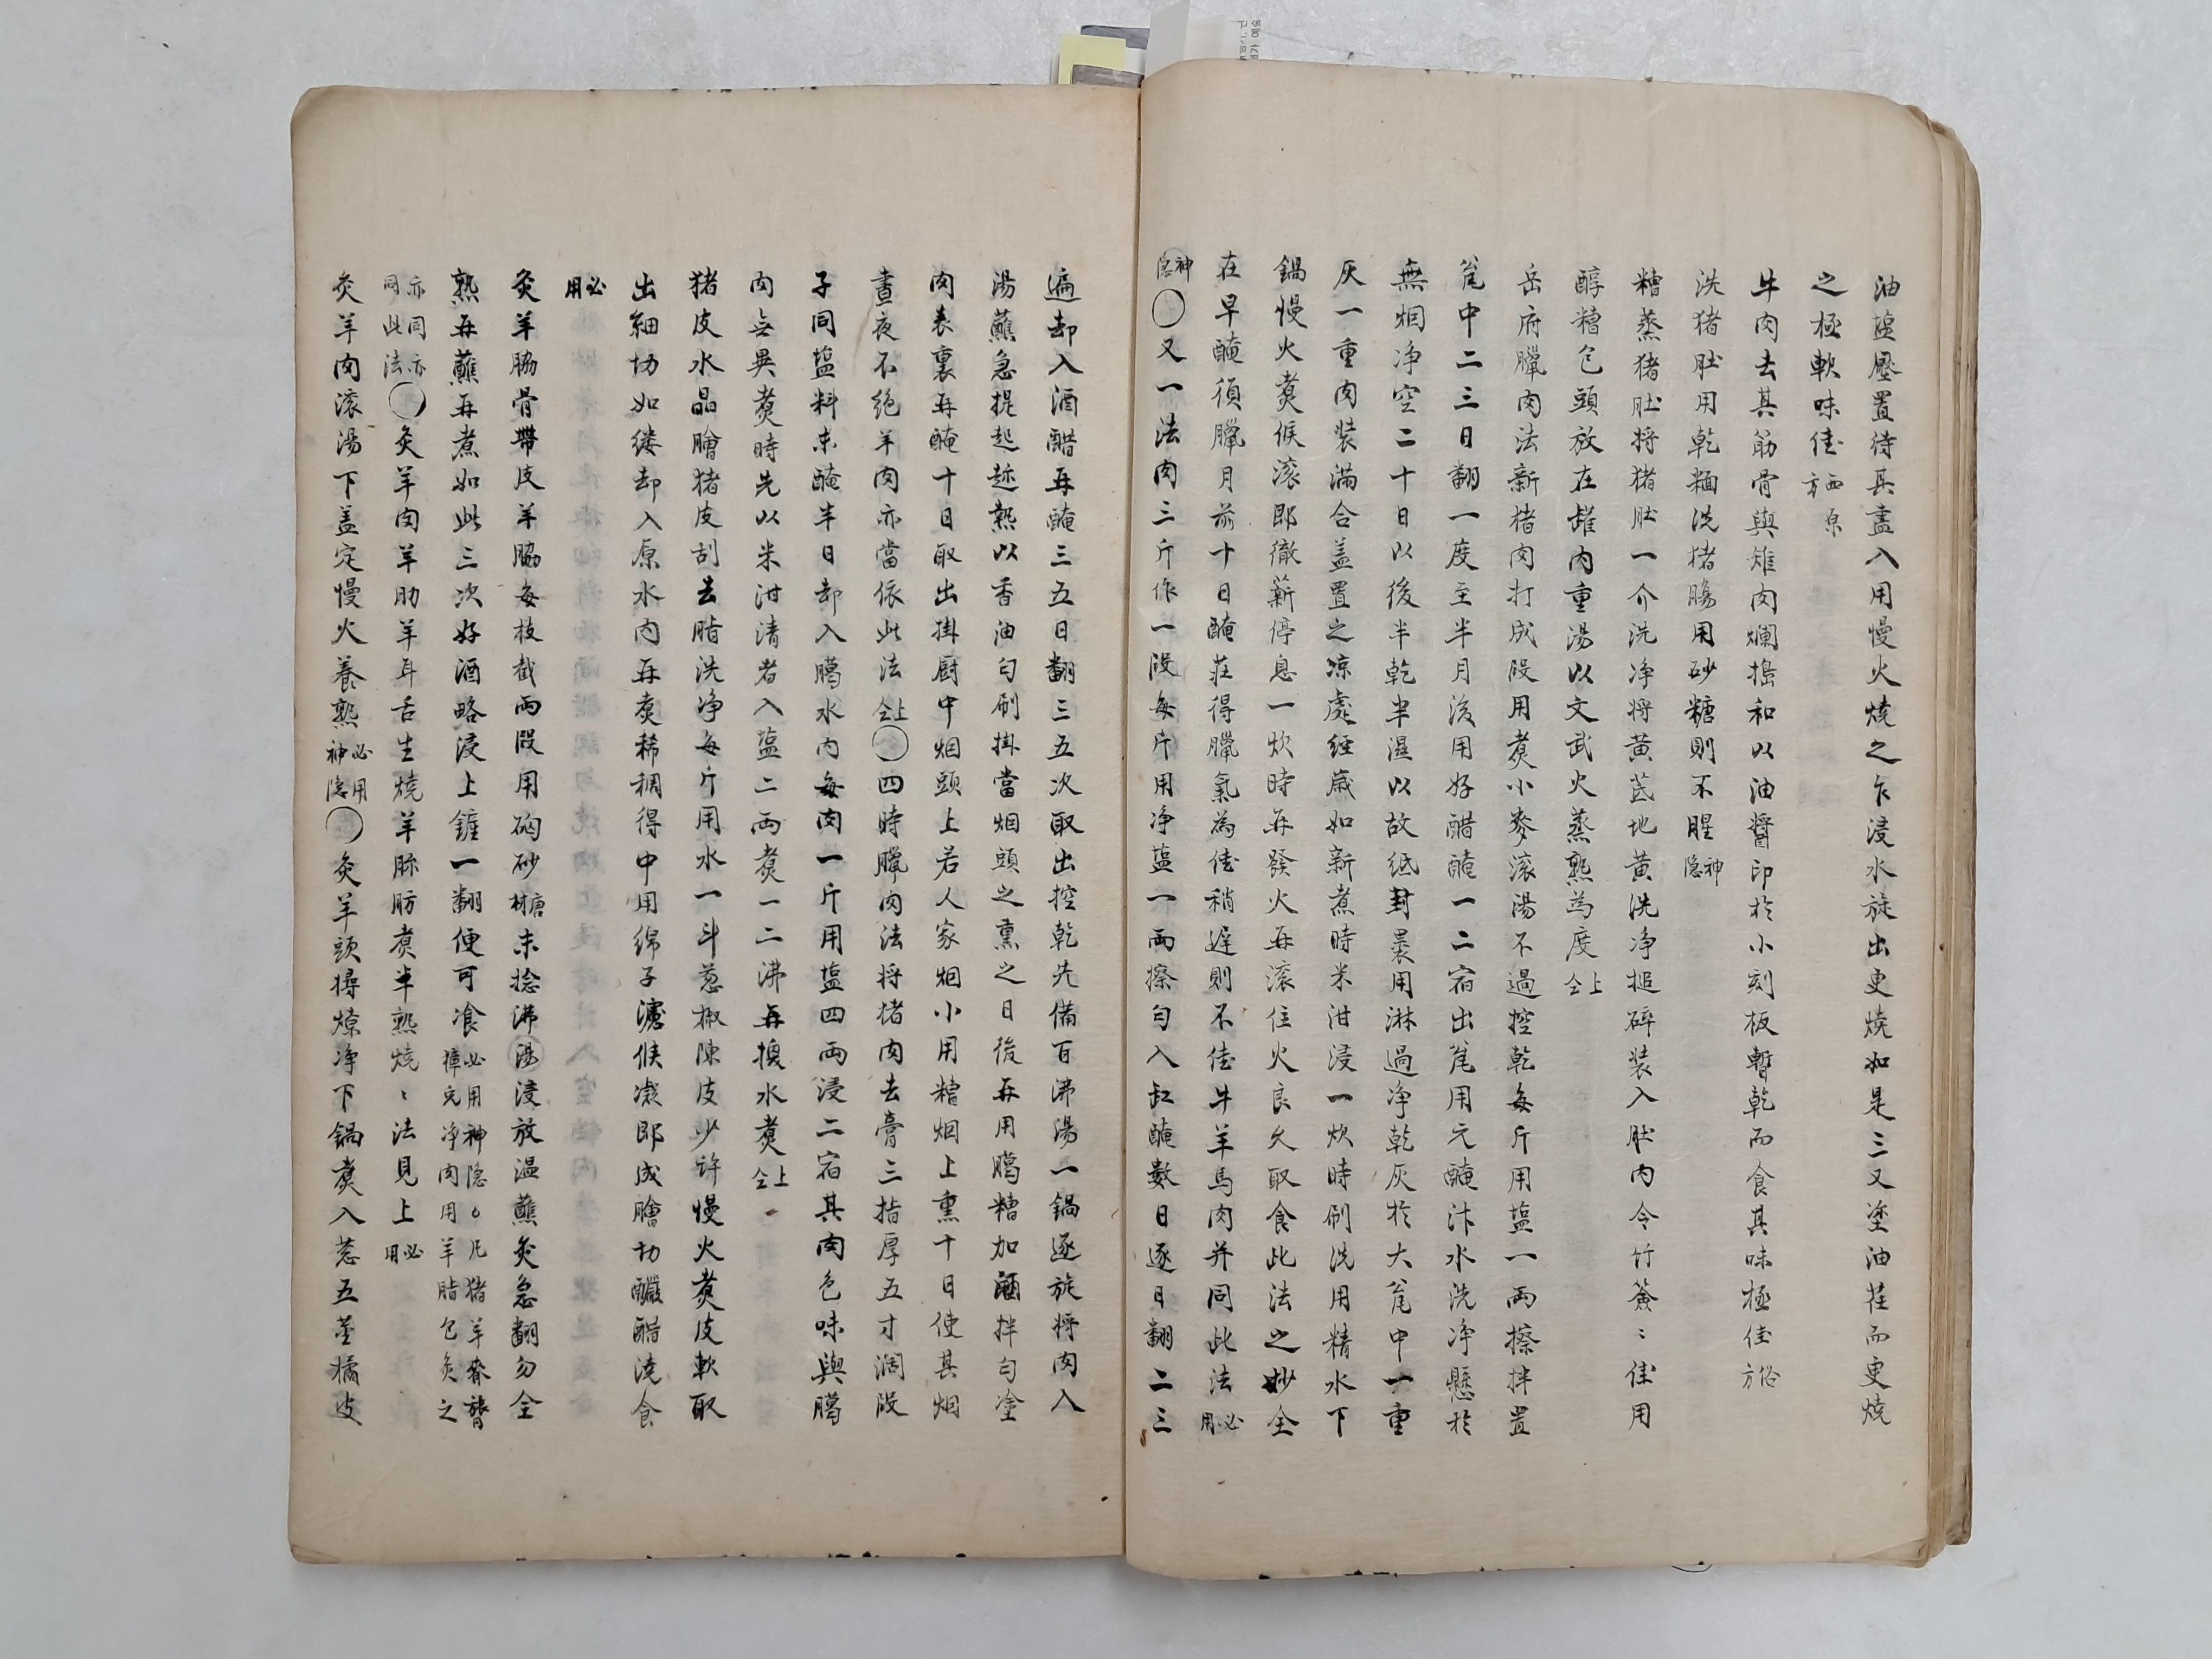 油塩壓置待其盡入用慢火燒之乍浸水旋出更燒如是三又塗油荏而更燒
之極軟味佳西原方
牛肉去其筋骨與雉肉爛搗和以油醬印於小刻板暫乾而食其味極佳俗方
洗猪肚用乾麺洗猪膓用砂糖則不腥神隐
糟蒸猪肚将猪肚一介洗净将黄茋地黄洗净搥碎装入肚内令竹簽〻佳用
醇糟包頭放在罐内重湯以文武火蒸熟為度仝上
岳府臘肉法新猪肉打成段用煑小麥滚湯不過控乾每斤用塩一兩擦拌置
瓮中二三日翻一度至半月後用好醋醃一二宿出瓮用元醃汁水洗净懸於
無烟净空二十日以後半乾半濕以故紙封褁用淋過净乾灰於大瓮中一重
灰一重肉装满合盖置之凉處經歲如新煮時米泔浸一炊時刷洗用精水下
鍋慢火煑候滚即徹薪停息一炊時再發火再滚住火良久取食此法之妙全
在早醃須臘月前十日醃荘得臘氣為佳稍遅則不佳牛羊馬肉并同此法必用
神隐〇又一法肉三斤作一段每斤用净塩一兩擦匀入缸醃數日逐日翻二三
遍却入酒醋再醃三五日翻三五次取出控乾先備百沸湯一鍋逐旋将肉入
湯蘸急提起趂熟以香油匀刷掛當烟頭之熏之日後再用臈糟加酒拌匀塗
肉表裏再醃十日取出掛厨中烟頭上若人家烟小用糟烟上熏十日使其烟
晝夜不绝羊肉亦當依此法仝上〇四時臘肉法将猪肉去膏三指厚五寸濶段
子同塩料末醃半日却入臈水内每肉一斤用塩四兩浸二宿其肉色味與臈
肉無異煑時先以米泔清者入塩二兩煑一二沸再換水煑仝上
猪皮水晶膾猪皮刮去脂洗净每斤用水一斗葱椒陳皮少許慢火煑皮軟取
出細切如缕却入原水内再煑稀稠得中用綿子濾候凝即成膾切釅醋澆食
必用
炙羊脇骨帶皮羊脇每枝截兩段用硇砂末捻沸湯浸放温蘸炙急翻勿令
熟再蘸再煮如此三次好酒略浸上鏟一翻便可飡必用神隐〇凡猪羊脊膂獐兎净肉用羊脂包炙之
亦同亦同此法〇炙羊肉羊肋羊耳舌生燒羊脎肪煑半熟燒〻法見上必用
炙羊肉滚湯下盖定慢火養熟必用神隐〇炙羊頭撏燎净下鍋煑入葱五莖橘皮